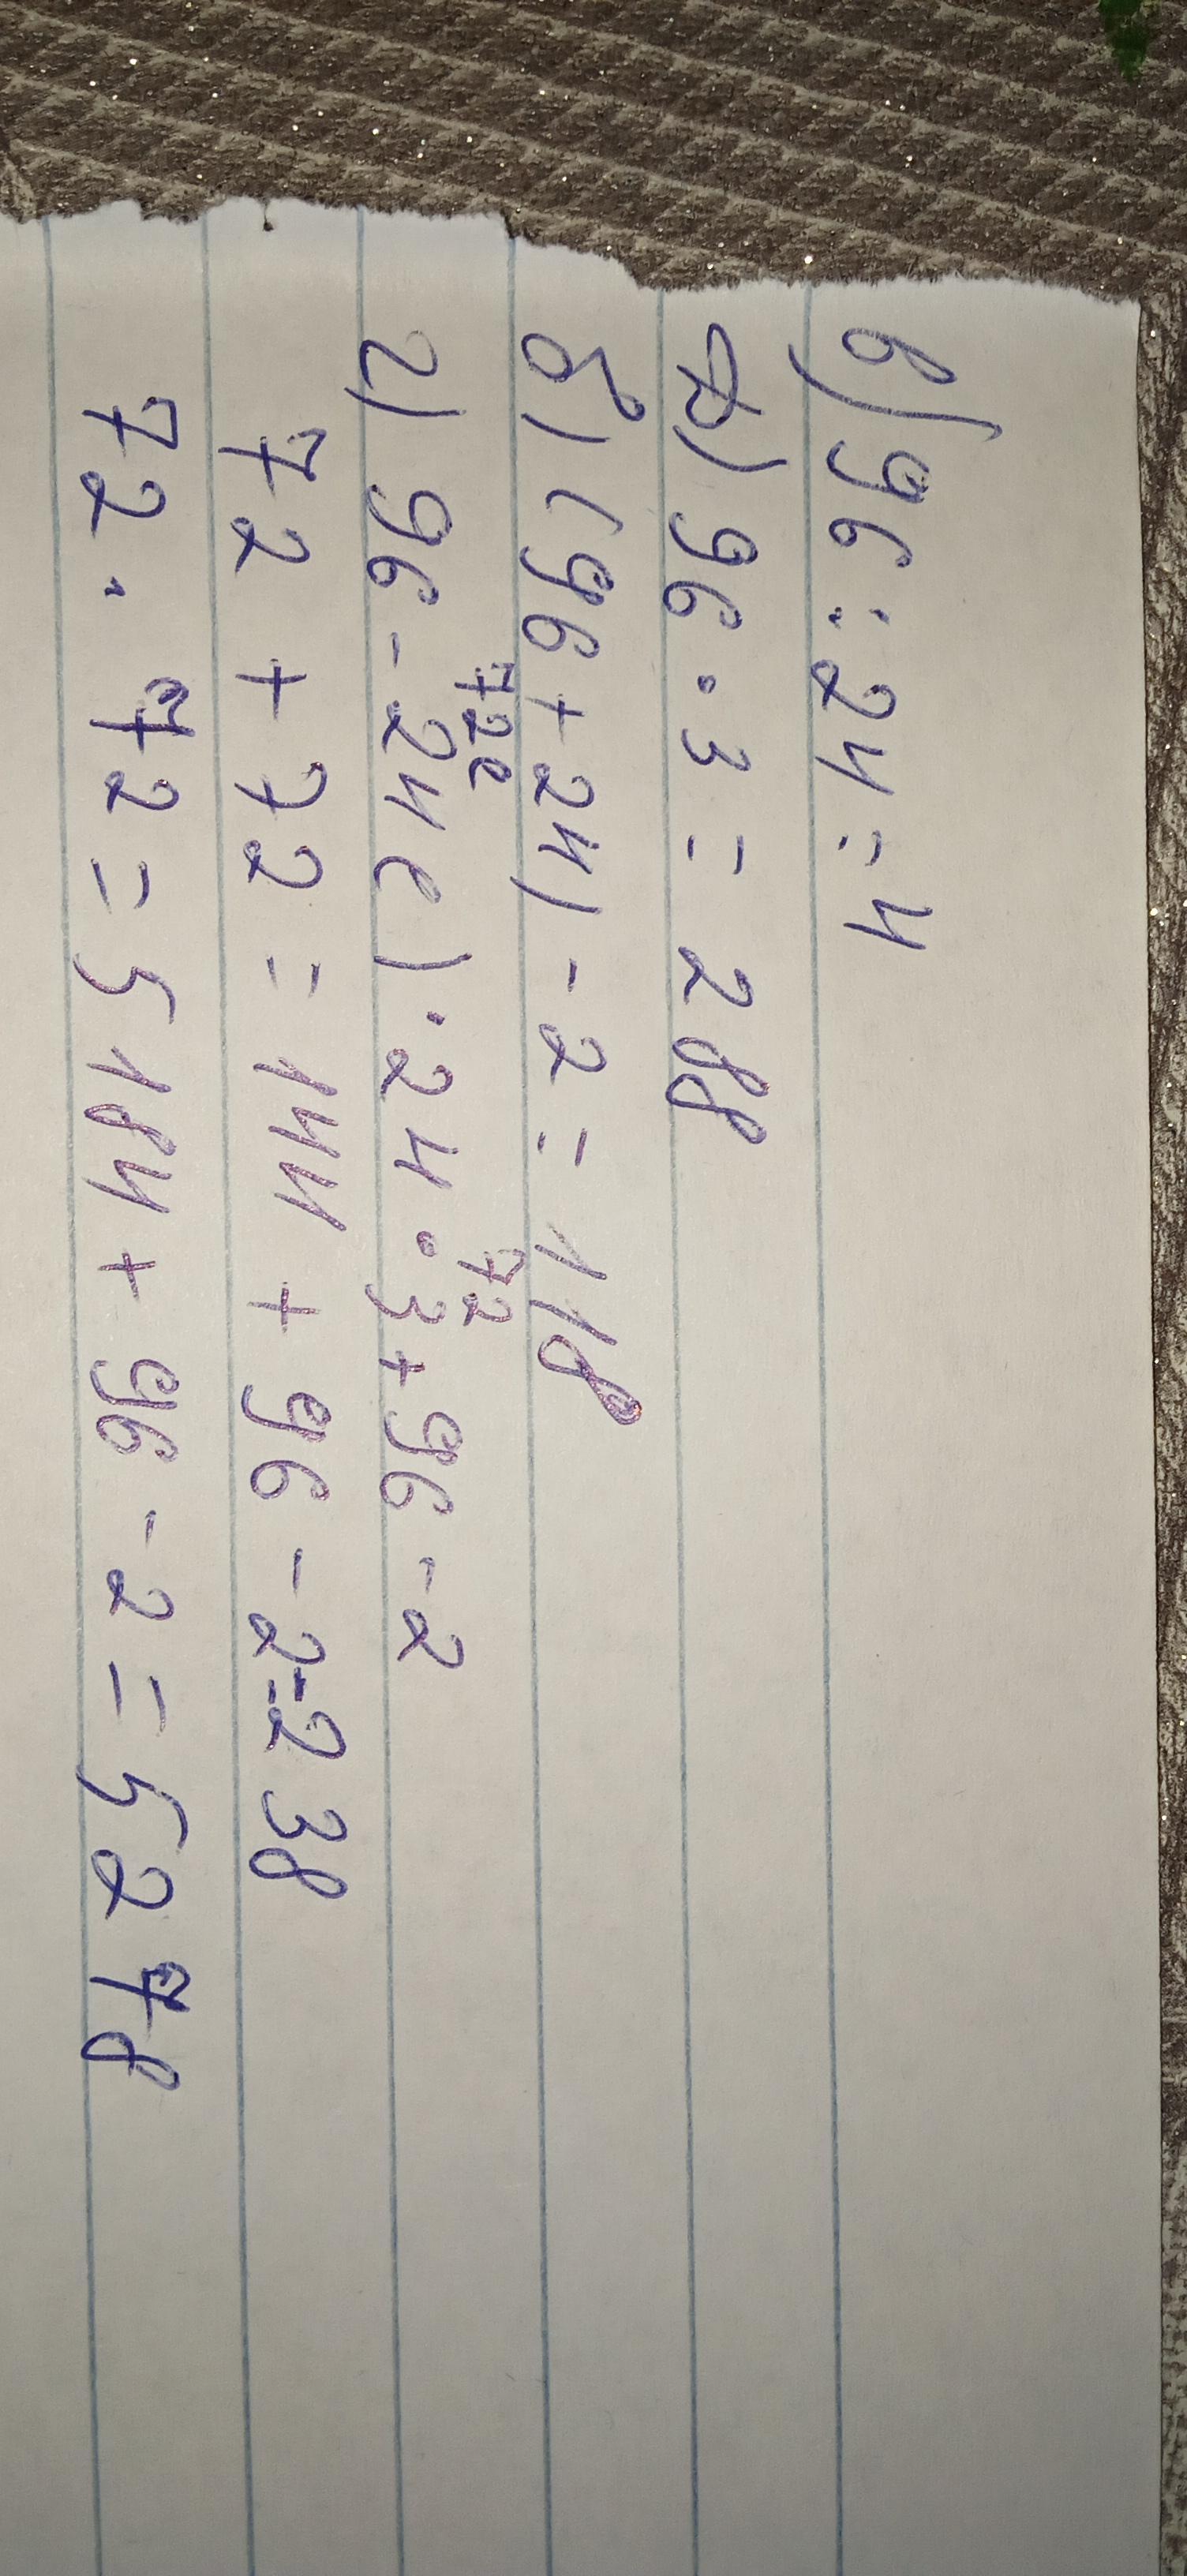 в) 96 : 24 = 4
7) 96 · 3 = 288
б) (96 + 24) - 2 = 118
72е 72
2) 96 - 24 е) · 24 · 3 + 96 - 2
72 + 72 = 144 + 96 - 2 = 238
72 · 72 = 5184 + 96 - 2 = 5278